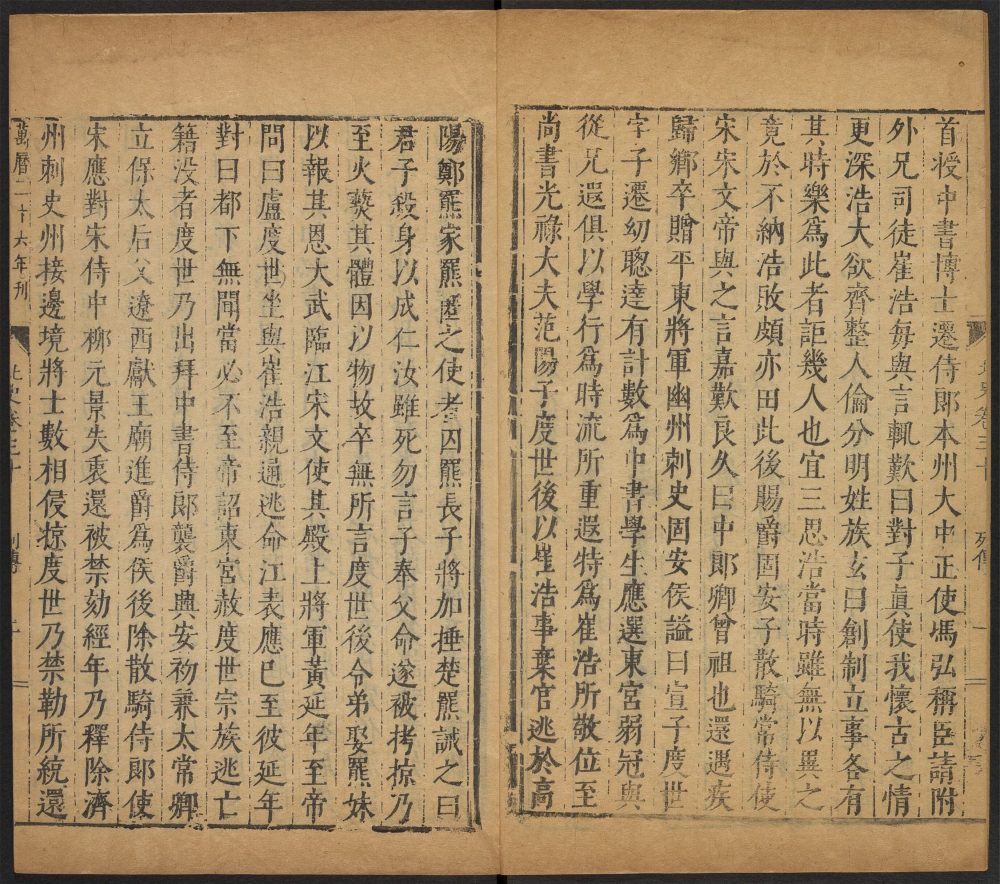 首授中書博士遷侍郎本州大中正使馮弘稱臣請附
外兄司徒崔浩每與言輒歎曰對子眞使我懷古之情
更深浩大欲齊整人倫分明姓族玄曰創制立事各有
其時樂爲此者詎幾人也宜三思浩當時雖無以異之
竟於不納浩敗頗亦由此後賜爵固安子散騎常侍使
宋宋文帝與之言嘉歎良久曰中郎卿曾祖也還遇疾
歸鄉卒贈平東將軍幽州刺史固安侯謚曰宣子度世
字子遷幼聰達有計數爲中書學生應選東宮弱冠與
從兄遐俱以學行爲時流所重遐特爲崔浩所敬位至
尚書光祿大夫范陽子度世後以崔浩事棄官逃於高
陽鄭羆家羆匿之使者囚羆長子將加捶楚羆誡之曰
君子殺身以成仁汝雖死勿言子奉父命遂被拷掠乃
至火爇其體因以物故卒無所言度世後令弟娶羆妹
以報其恩大武臨江宋文使其殿上將軍黃延年至帝
問曰盧度世坐與崔浩親逼逃命江表應已至彼延年
對曰都下無聞當必不至帝詔東宮赦度世宗族逃亡
籍没者度世乃出拜中書侍郎襲爵興安初兼太常卿
立保太后父遼西獻王廟進爵爲侯後除散騎侍郎使
宋應對宋侍中柳元景失衷還被禁劾經年乃釋除濟
州刺史州接邊境將士數相侵掠度世乃禁勒所統還
萬曆二十六年刊
北史卷三十
列傳
二